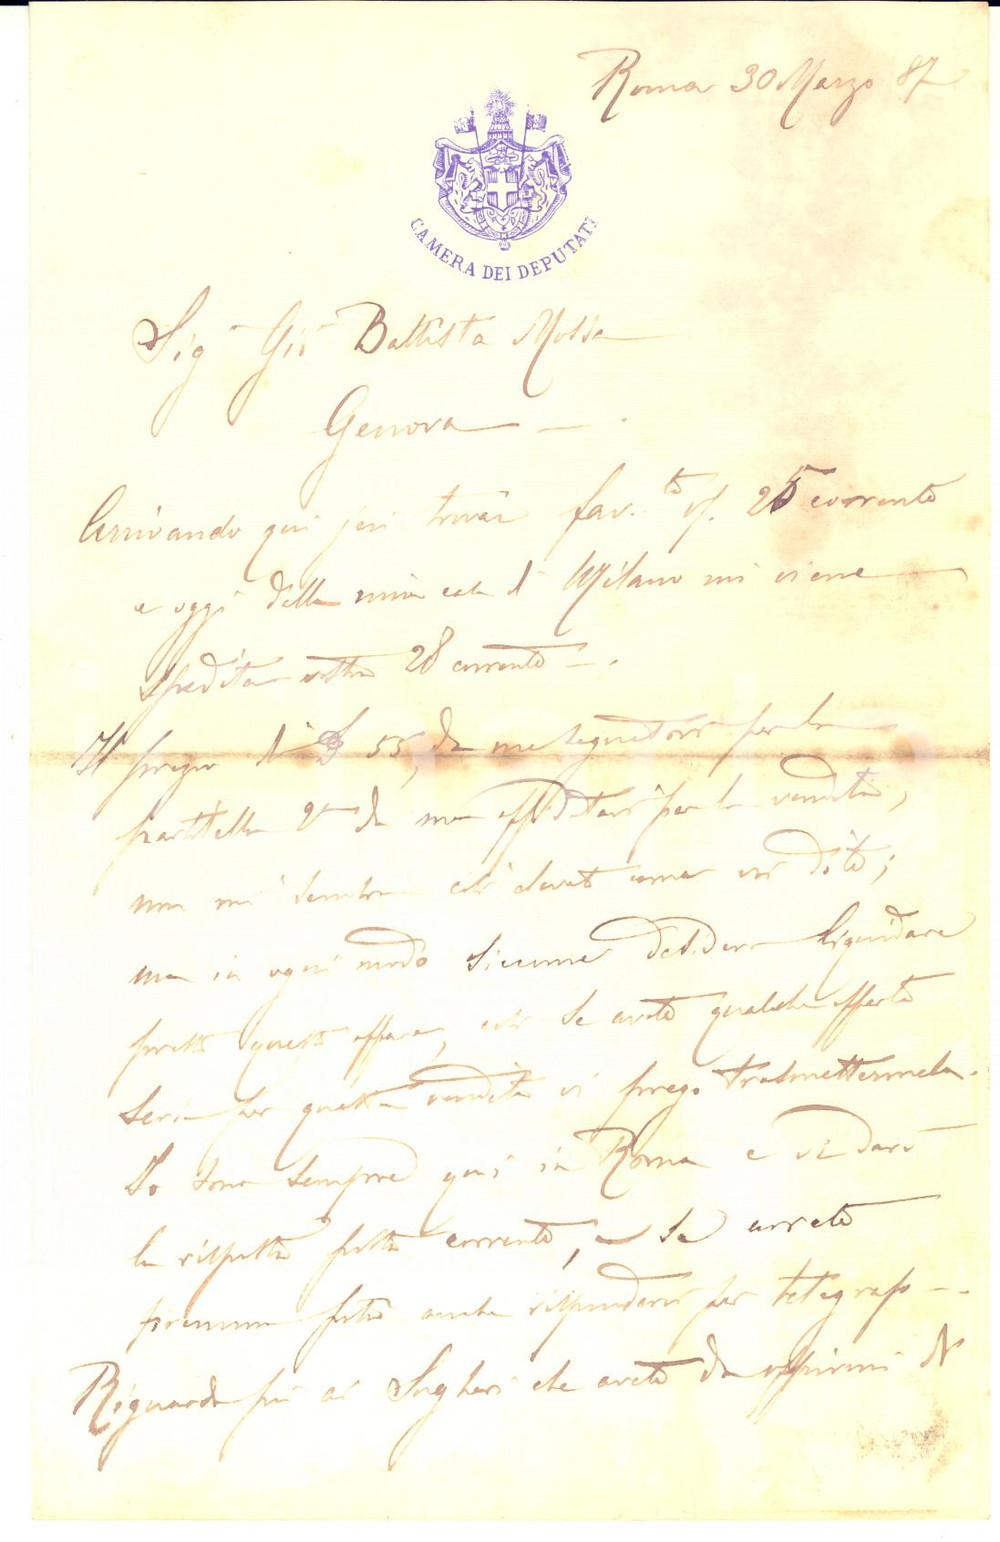 Roma 30 Marzo 87
CAMERA DEI DEPUTATI
Sig Gio Battista Mossa
Genova
Arrivando qui jeri trovai fav.ta v/. 25 corrente
e oggi dalla mia casa di Milano mi viene
spedita vostra 28 corrente.
Il prezzo di 55, da me segnatovi per la
partitella 2a da me affidatavi per la vendita,
non mi sembra così elevato come voi dite;
ma in ogni modo siccome desidero liquidare
presto questo affare, così se avete qualche offerta
seria per questa vendita vi prego trasmettermela.
Io sono sempre qui in Roma e vi darò
la risposta posta corrente, e se avrete
premura potrò anche rispondervi per telegrafo.
Riguardo poi ai Sugheri che avete da offrirmi di